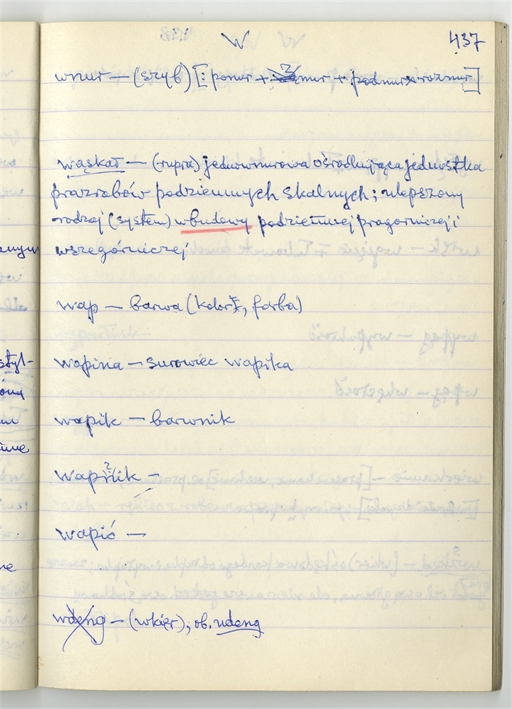 W
437
wnur – (szyb) [: ponur + nur + podnur × roznur]
wąskał – (rupra) jednownurowa ośrodkująca jednostka
przerobów podziemnych skalnych; ulepszony
rodzaj (system) wbudowy podziemnej progórniczej i
wszegórniczej
wap – barwa (kolor, farba)
wapina – surowiec wapika
wapik – barwnik
wapnik –
wapić –
wdeng – (wkięr), ob. udeng